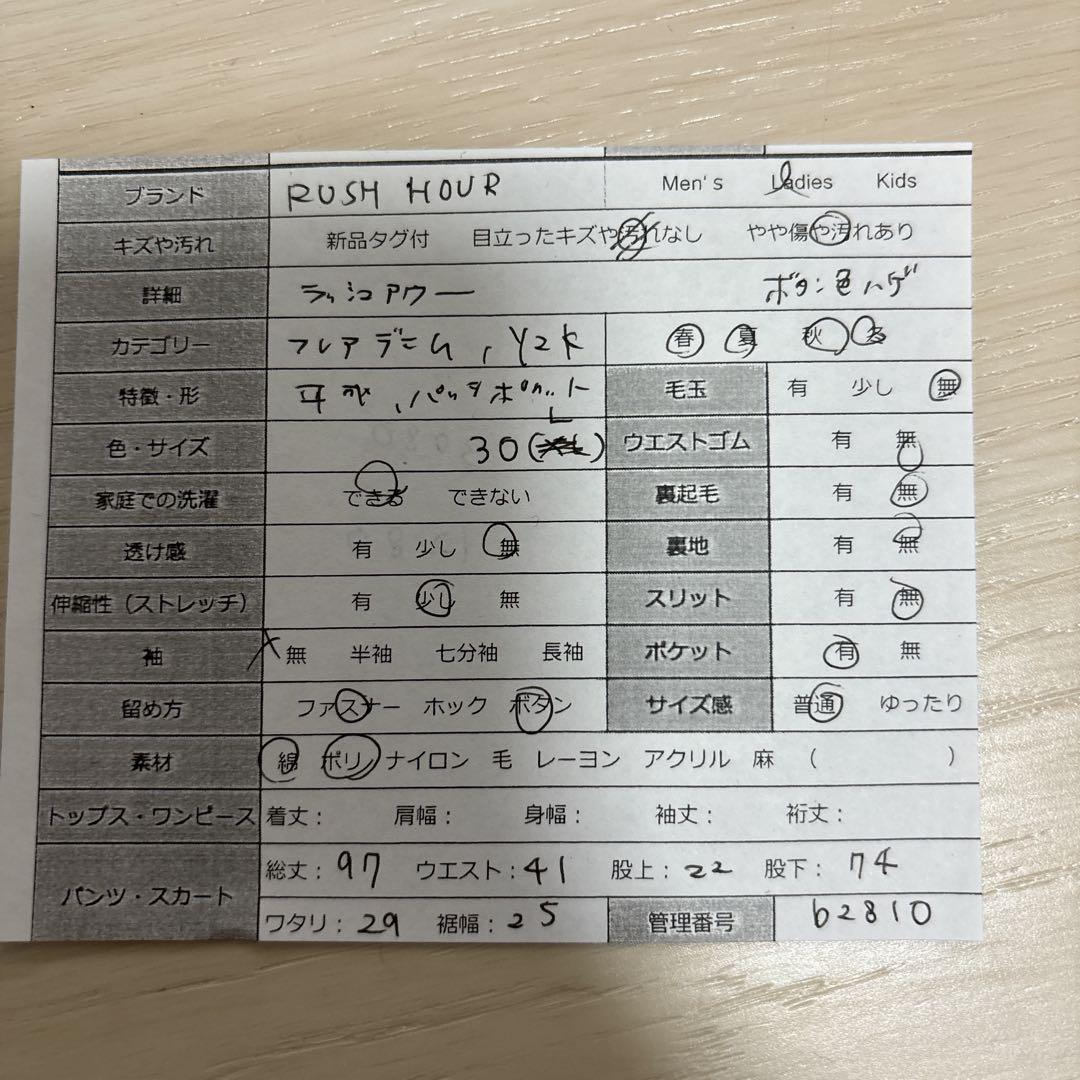 ブランド RUSH HOUR Men's Ladies Kids
キズや汚れ 新品タグ付 目立ったキズや汚れなし やや傷や汚れあり
詳細 ラッシュアワー ボタン色ハゲ
カテゴリー フレアデニム、Y2K 春 夏 秋 冬
特徴・形 耳無、パッチポケット 毛玉 有 少し 無
色・サイズ 30(L) ウエストゴム 有 無
家庭での洗濯 できる できない 裏起毛 有 無
透け感 有 少し 無 裏地 有 無
伸縮性(ストレッチ) 有 少し 無 スリット 有 無
袖 無 半袖 七分袖 長袖 ポケット 有 無
留め方 ファスナー ホック ボタン サイズ感 普通 ゆったり
素材 綿 ポリ ナイロン 毛 レーヨン アクリル 麻 ( )
トップス・ワンピース 着丈: 肩幅: 身幅: 袖丈: 裄丈:
パンツ・スカート 総丈:97 ウエスト:41 股上:22 股下:74
ワタリ:29 裾幅:25 管理番号 b2810